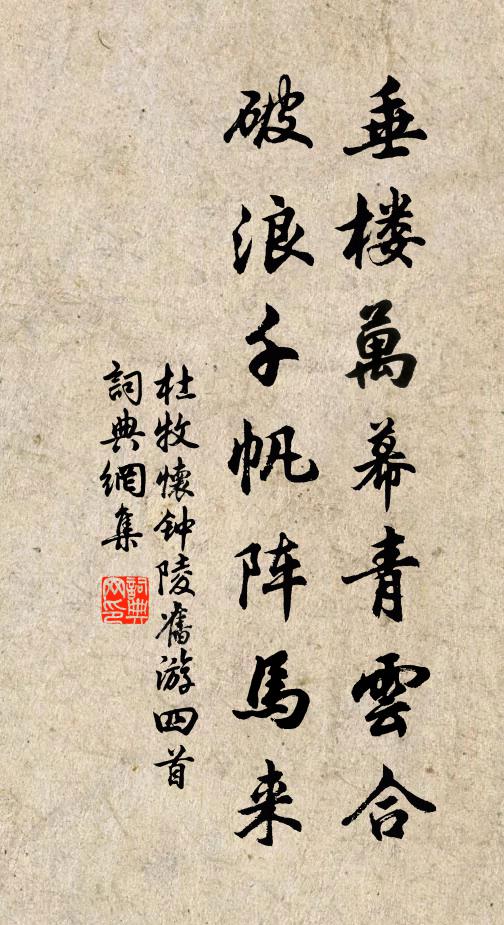 垂楼萬幕青雲合
破浪千帆阵馬来
杜牧懷钟陵舊游四首
詞典網集
詞典网印